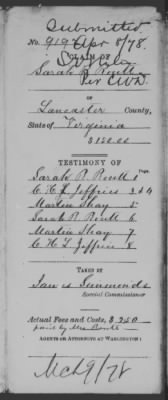 Submitted
No. 919 Apr 8/78.
CLAIM OF
Sarah P. Routt
Per CWD
OF
Lancaster County,
State of Virginia
$ 150.00
TESTIMONY OF
Page.
Sarah P. Routt 1
C. H. L. Jeffries 3 & 4
Martin Shay 5
Sarah P. Routt 6
Martin Shay 7
C. H. L. Jeffries 8
TAKEN BY
James Simmonds
Special Commissioner
Actual Fees and Costs, $ 2.40
paid by Mrs Routt
AGENTS OR ATTORNEYS AT WASHINGTON:
Mch 9/78